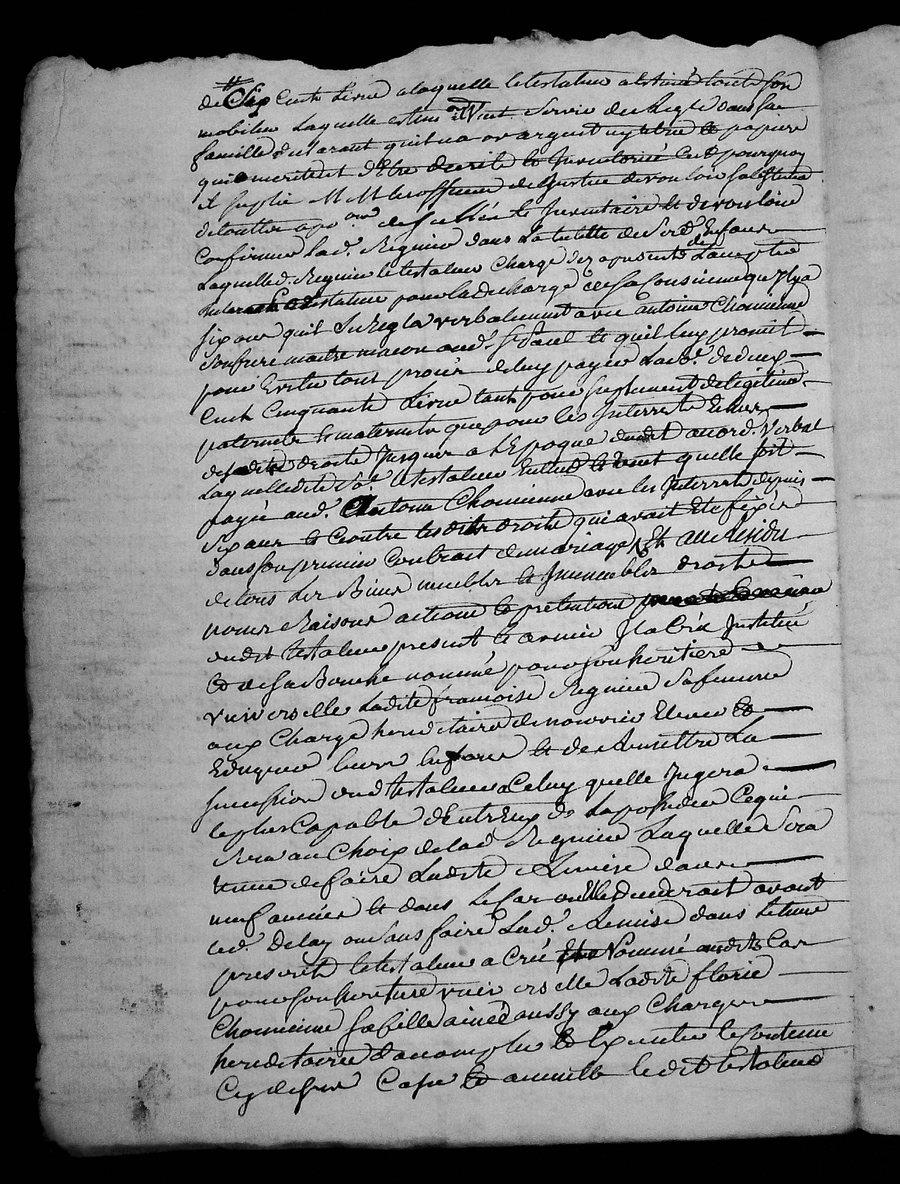 de Six Cents Livres a laquelle le testateur a estimé tout son
mobilier laquelle estimation Vient Servir de Regle dans sa
famille declarant quil na or argent ny titres et papiers
qui meritent d'être decrits et Inventoriés C'est pourquoy
il Suplie M M les officiers de Justice de vouloir
de toutte de et Inventaire et de vouloir
Confirmer lad. Regnier dans la tutelle de Sesd. Enfans
Laquelle d. Regnier le testateur Charge des apresent de
le testateur pour la decharge de sa Consience que Il y a
six ans quil Se regla verballement avec antoine Chomienne
son frere maitre macon aud. St. Paul et quil luy promit
pour Eviter tout procès de luy payer La So. de deux
Cents Cinquante Livres tant pour suplement de legitime
paternelle et maternelle que pour les Interrets de Ses
desdits droits jusques a l'Epoque dudit accord Verbal
laquelle dite So. le testateur Entend et veut quelle soit
payée aud. Antoine Chomienne avec les Interrets depuis
six ans et Contre lesdits droits qui avait Eté fixés
dans son premier Contrait de mariage, Et au Residu
de tous Les Biens meubles et Immeubles droits
noms Raisons actions et pretentions
dudit testateur presents et avenir Il a Créé Institué
et de sa Bouche nommé pour Son heritiere
universelle Ladite francoise Regnier Sa femme
aux Charges hereditaires de nourrir Elever et
Eduquer leurs Enfans et de Remettre La
succession dud testateur a Celuy quelle Jugera
le plus Capable d'Entreux de la posseder Ce qui
Sera au Choix de lad. Regnier Laquelle Sera
tenue de faire Ladite Remise dans
neuf années Et dans Le Cas ou Elle decederait avant
led. delay ou Sans faire Lad. Remise dans le tems
prescrit le testateur a Créé Nommé audit Cas
pour Son heritiere universelle Ladite florie
Chomienne Sa fille ainée aussy aux Charges
hereditaires d'acomplir et Executer le Contenu
Cy dessus Casse et annulle ledit testateur